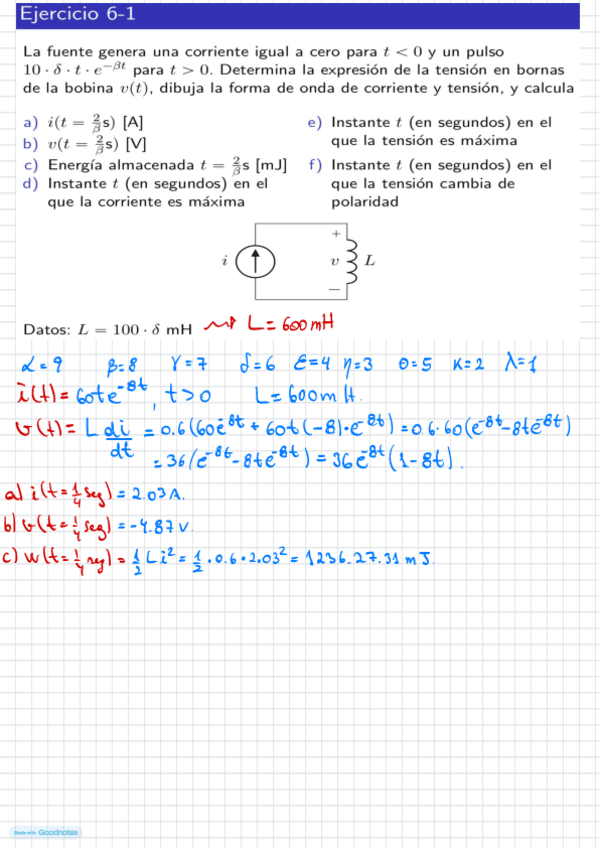 Ejercicio 6-1
La fuente genera una corriente igual a cero para t < 0 y un pulso
10 · δ · t · e^{−βt} para t > 0. Determina la expresión de la tensión en bornas
de la bobina v(t), dibuja la forma de onda de corriente y tensión, y calcula
a) i(t = 2/β s) [A]
b) v(t = 2/β s) [V]
c) Energía almacenada t = 2/β s [mJ]
d) Instante t (en segundos) en el
que la corriente es máxima
e) Instante t (en segundos) en el
que la tensión es máxima
f) Instante t (en segundos) en el
que la tensión cambia de
polaridad
+
i
v
L
−
Datos: L = 100 · δ mH → L = 600 mH
α = 9 β = 8 γ = 7 δ = 6 ε = 4 η = 3 θ = 5 κ = 2 λ = 1
i(t) = 60te^{-8t}, t > 0 L = 600 mH.
v(t) = L di/dt = 0.6(60e^{-8t} + 60t(-8)·e^{-8t}) = 0.6·60(e^{-8t} - 8te^{-8t})
= 36(e^{-8t} - 8te^{-8t}) = 36e^{-8t}(1-8t).
a) i(t = 1/4 seg) = 2.03 A.
b) v(t = 1/4 seg) = -4.87 V.
c) w(t = 1/4 seg) = 1/2 Li² = 1/2 · 0.6 · 2.03² = 1236.27.31 mJ.
Made with Goodnotes